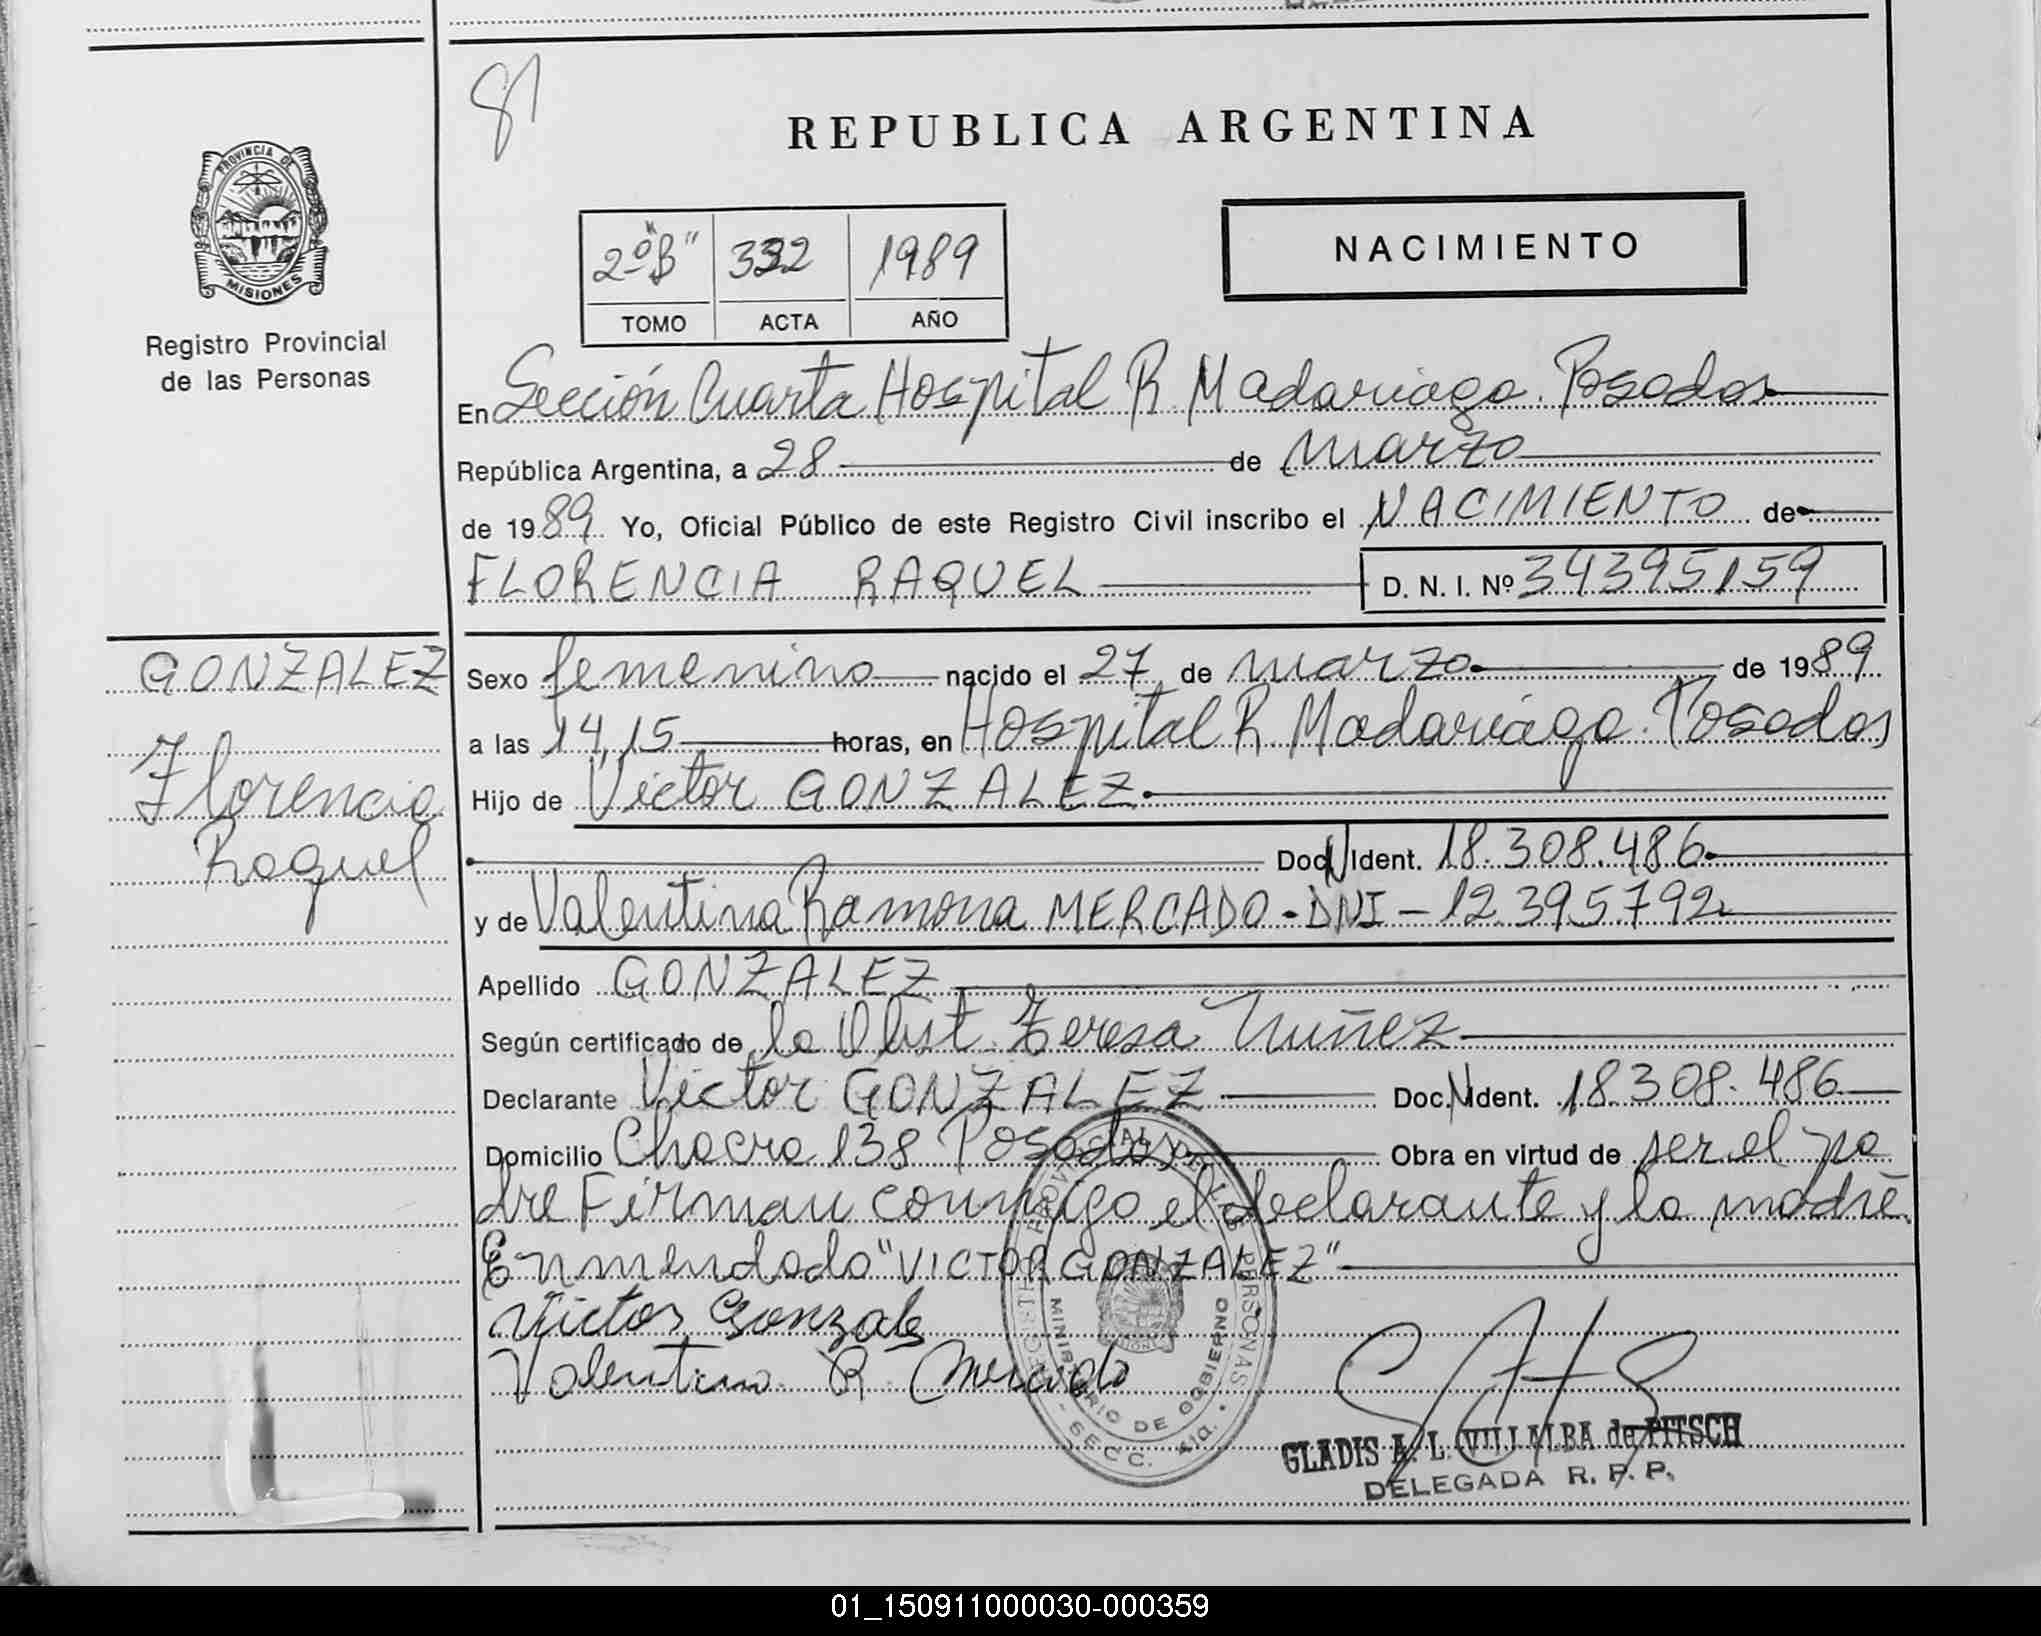 81
REPUBLICA ARGENTINA
PROVINCIA DE
MISIONES
Registro Provincial
de las Personas
2º "B" 332 1989
TOMO ACTA AÑO
NACIMIENTO
En Sección Cuarta Hospital R. Madariaga. Posadas
República Argentina, a 28 de marzo
de 1989 Yo, Oficial Público de este Registro Civil inscribo el NACIMIENTO de
FLORENCIA RAQUEL D. N. I. Nº 34395159
GONZALEZ
Florencia
Raquel
Sexo femenino nacido el 27 de marzo de 1989
a las 14,15 horas, en Hospital R. Madariaga. Posadas
Hijo de Victor GONZALEZ
Doc. N Ident. 18.308.486
y de Valentina Ramona MERCADO - DNI - 12.395.792
Apellido GONZALEZ
Según certificado de la Obst. Teresa Nuñez
Declarante Victor GONZALEZ Doc. N Ident. 18.308.486
Domicilio Chacra 138 Posadas Obra en virtud de ser el pa
dre Firman conmigo el declarante y la madre.
Enmendado "VICTOR GONZALEZ"
Victor Gonzalez
Valentina R. Mercado
REGISTRO PROVINCIAL DE LAS PERSONAS
MINISTERIO DE GOBIERNO
SECC. 4ta.
GLADIS A. L. VILLALBA de PITSCH
DELEGADA R. P. P.
01_150911000030-000359